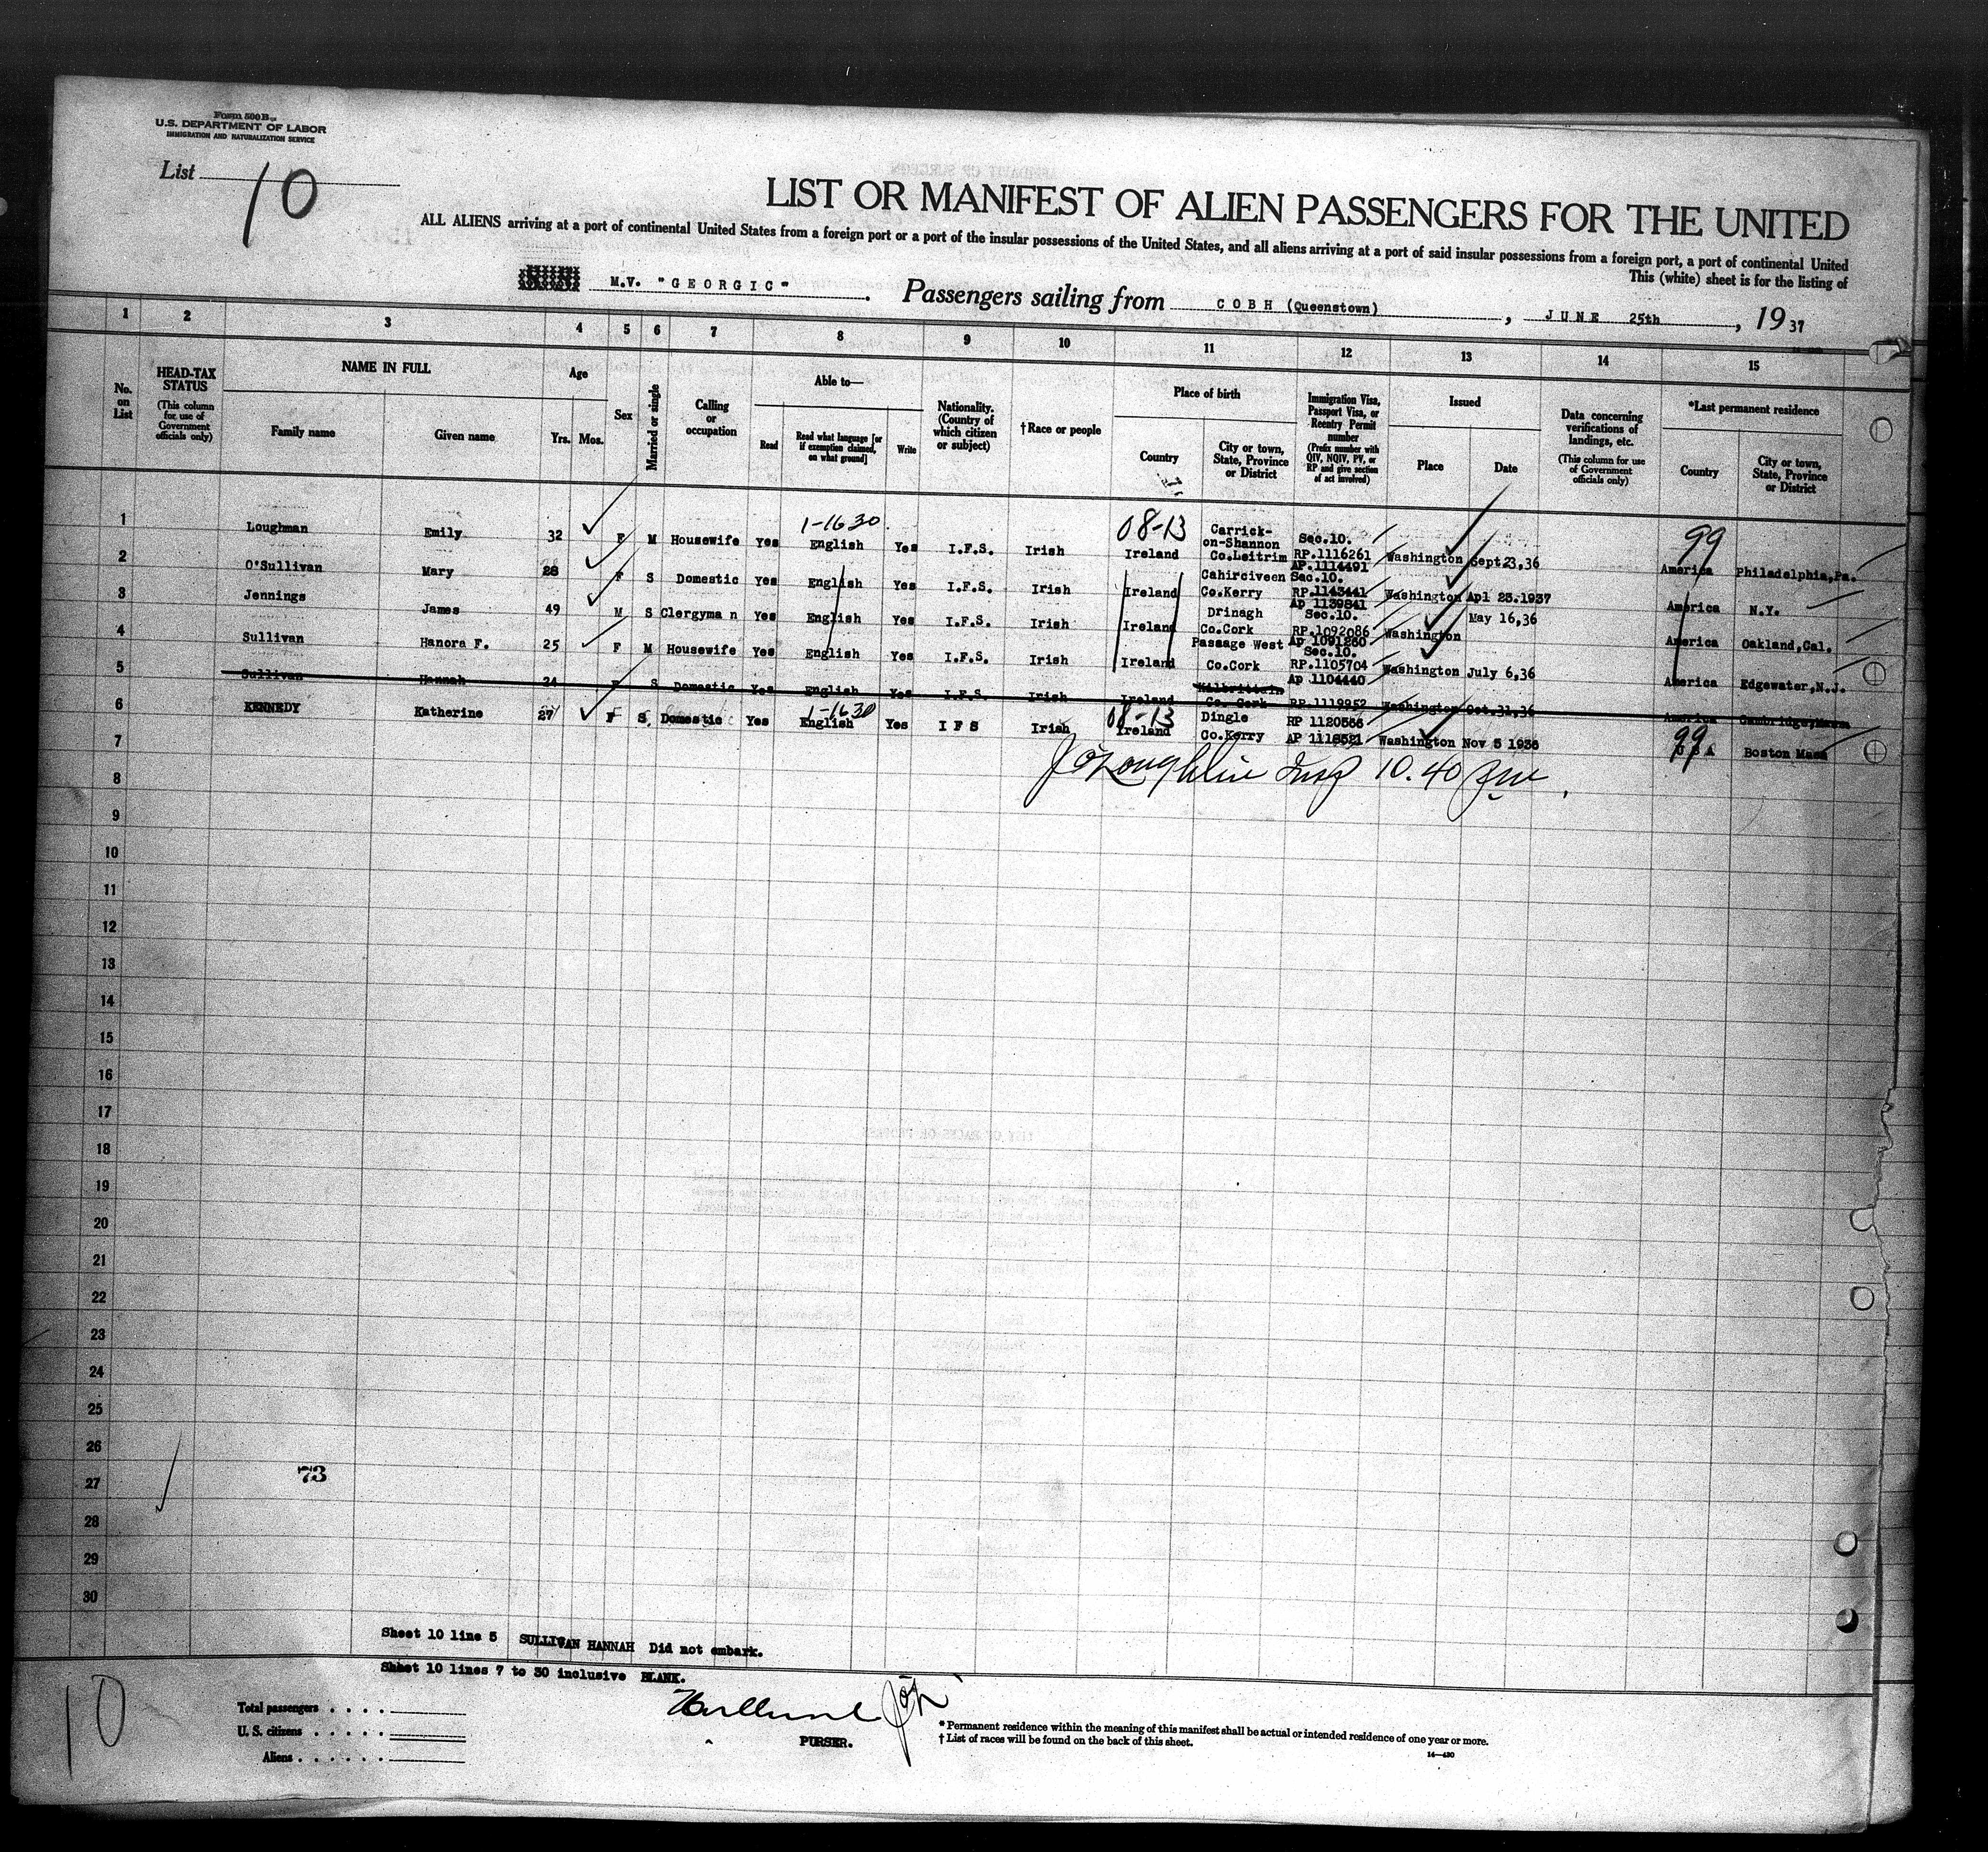 Form 500 B
U.S. DEPARTMENT OF LABOR
IMMIGRATION AND NATURALIZATION SERVICE
List 10
LIST OR MANIFEST OF ALIEN PASSENGERS FOR THE UNITED
ALL ALIENS arriving at a port of continental United States from a foreign port or a port of the insular possessions of the United States, and all aliens arriving at a port of said insular possessions from a foreign port, a port of continental United
This (white) sheet is for the listing of
M.V. "GEORGIC". Passengers sailing from COBH (Queenstown), JUNE 25th, 1937
1 2 3 4 5 6 7 8 9 10 11 12 13 14 15
No. on List
HEAD-TAX STATUS
(This column for use of Government officials only)
NAME IN FULL
Family name
Given name
Age
Yrs. Mos.
Sex
Married or single
Calling or occupation
Able to—
Read
Read what language [or if exemption claimed, on what ground]
Write
Nationality. (Country of which citizen or subject)
†Race or people
Place of birth
Country
City or town, State, Province or District
Immigration Visa, Passport Visa, or Reentry Permit number
(Prefix number with QIV, NQIV, PV, or RP and give section of act involved)
Issued
Place
Date
Data concerning verifications of landings, etc.
(This column for use of Government officials only)
*Last permanent residence
Country
City or town, State, Province or District
1-1630 08-13 99
1 Loughman Emily 32 F M Housewife Yes English Yes I.F.S. Irish Ireland Carrick-on-Shannon Co.Leitrim Sec.10. RP.1116261 AP.1114491 Washington Sept 23,36 America Philadelphia,Pa.
2 O'Sullivan Mary 28 F S Domestic Yes English Yes I.F.S. Irish Ireland Cahirciveen Co.Kerry Sec.10. RP.1143441 Ap 1139841 Washington Apl 23.1937 America N.Y.
3 Jennings James 49 M S Clergyman Yes English Yes I.F.S. Irish Ireland Drinagh Co.Cork Sec.10. RP.1092086 Ap 1091260 Washington May 16,36 America Oakland,Cal.
4 Sullivan Hanora F. 25 F M Housewife Yes English Yes I.F.S. Irish Ireland Passage West Co.Cork Sec.10. RP.1105704 Ap 1104440 Washington July 6,36 America Edgewater,N.J.
5 Sullivan Hannah 24 F S Domestic Yes English Yes I.F.S. Irish Ireland Kilbrittain Co. Cork RP.1119952 Washington Oct.31,36 America Cambridge,Mass
1-1630 08-13 99
6 KENNEDY Katherine 27 F S Domestic Yes English Yes I F S Irish Ireland Dingle Co.Kerry RP 1120566 AP 1118521 Washington Nov 5 1936 U S A Boston Mass
7
J O'Loughlin Insp 10.40 pm
8
9
10
11
12
13
14
15
16
17
18
19
20
21
22
23
24
25
26
73
27
28
29
30
Sheet 10 line 5 SULLIVAN HANNAH Did not embark.
Sheet 10 lines 7 to 30 inclusive BLANK.
10
Total passengers . . . .
U. S. citizens . . . . .
Aliens . . . . . .
PURSER.
* Permanent residence within the meaning of this manifest shall be actual or intended residence of one year or more.
† List of races will be found on the back of this sheet.
14—430